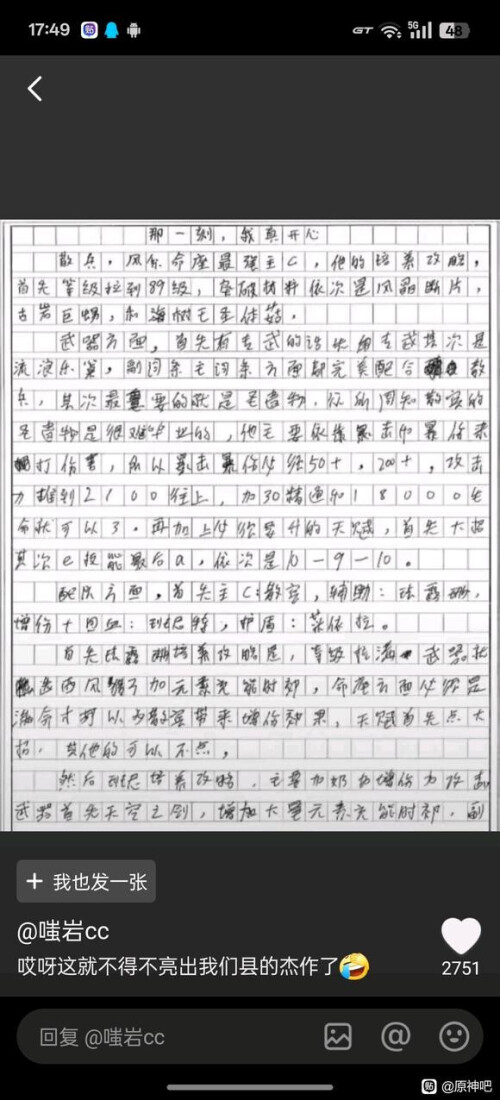 17:49
GT 5G 48
那一刻，我真开心
散兵，风系命座最强主C，他的培养攻略，
首先等级拉到89级，突破材料依次是风晶断片，
古岩巨蜗，和海树毛圣体菇。
武器方面，首先有专武的话先用专武其次是
流浪乐章，副词条主词条方面都完美配合散
兵，其次最重要的就是圣遗物，你所周知散兵的
圣遗物是很难毕业的，他主要依靠暴击和暴伤来
打伤害，所以暴击暴伤必须50+，200+，攻击
力推到2100往上，加30精通和18000生
命就可以了。再加上必须要升的天赋，首先大招
其次e技能最后a，依次是10-9-10。
配队方面，首先主C：散兵，辅助：珐露珊，
增伤+回血：班尼特，护盾：莱依拉。
首先珐露珊培养攻略是，等级拉满 武器就
选西风猎弓加元素充能时郊，命座方面必须是
满命才可以为散兵带来增伤效果，天赋首先点大
招，其他的可以不点，
然后班尼培养攻略，主要加奶和增伤为攻击
武器首先天空之剑，增加大量元素充能时郊，副
+ 我也发一张
@嗤岩cc
哎呀这就不得不亮出我们县的杰作了🤣
2751
回复 @嗤岩cc
贴 @原神吧